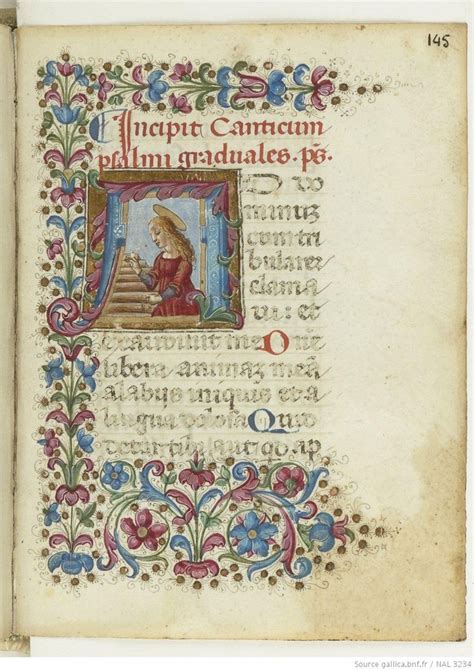 145
Incipit Canticum
psalmi graduales. ps.
AD do
minuz
cum tri
bularer
clama
ui: et
exaudiuit me Dne
libera animaz meā
alabijs iniquis et a
lingua dolosa Quid
detur tibi aut qd ap
Source gallica.bnf.fr / NAL 3234